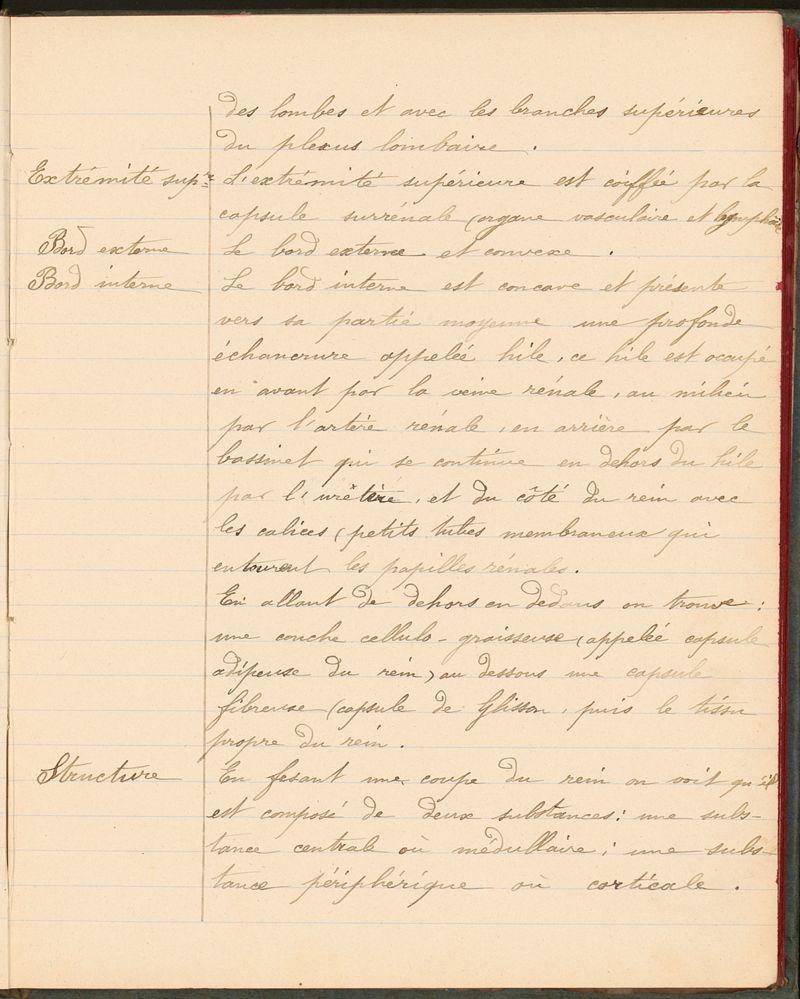 des lombes et avec les branches supérieures
du plexus lombaire.
Extrémité supre L'extrémité supérieure est coiffée par la
capsule surrénale (organe vasculaire et lymphati
Bord externe Le bord externe et convexe.
Bord interne Le bord interne est concave et présente
vers sa partie moyenne une profonde
échancrure appelée hile, ce hile est occupé
en avant par la veine rénale, au milieu
par l'artère rénale, en arrière par le
bassinet qui se continue en dehors du hile
par l'urètère, et du côté du rein avec
les calices (petits tubes membraneux qui
entourent les papilles rénales.
En allant de dehors en dedans on trouve:
une couche cellulo-graisseuse (appelée capsule
adipeuse du rein) au dessous une capsule
fibreuse (capsule de Glisson, puis le tissu
propre du rein.
Structure En fesant une coupe du rein on voit qu'il
est composé de deux substances: une subs-
tance centrale où médullaire; une subs-
tance périphérique où corticale.